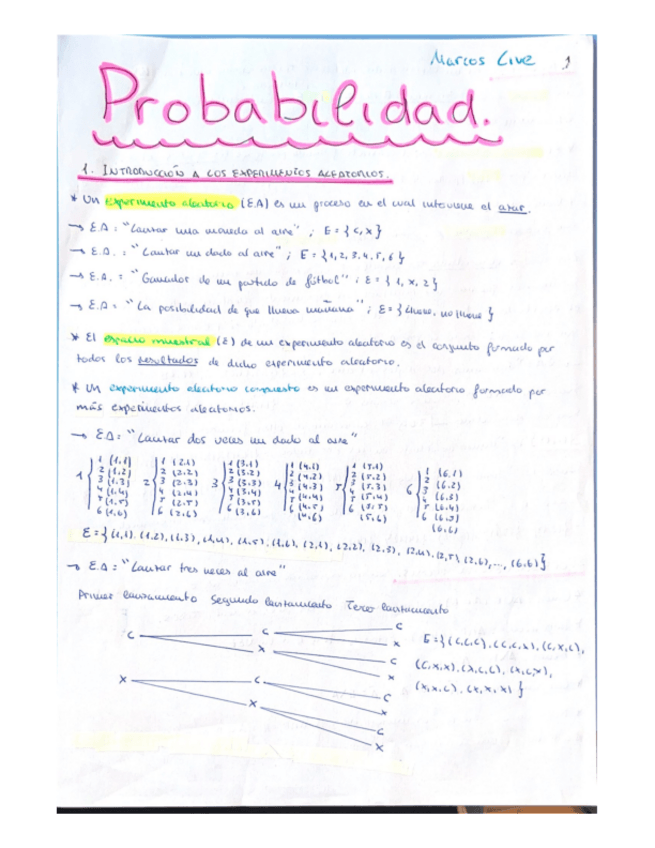 Marcos Cive 1
Probabilidad.
1. INTRODUCCIÓN A LOS EXPERIMENTOS ALEATORIOS.
* Un experimento aleatorio (E.A) es un proceso en el cual interviene el azar.
→ E.A: "Lanzar una moneda al aire" ; E = {C, X}
→ E.A. : "Lanzar un dado al aire" ; E = {1, 2, 3, 4, 5, 6}
→ E.A. : "Ganador de un partido de fútbol" ; E = {1, X, 2}
→ E.A : "La posibilidad de que llueva mañana" ; E = {llueve, no llueve}
* El espacio muestral (E) de un experimento aleatorio es el conjunto formado por
todos los resultados de dicho experimento aleatorio.
* Un experimento aleatorio compuesto es un experimento aleatorio formado por
más experimentos aleatorios.
→ E.A : "Lanzar dos veces un dado al aire"
1 (1,1) 1 (2,1) 1 (3,1) 1 (4,1) 1 (5,1) 1 (6,1)
2 (1,2) 2 (2,2) 2 (3,2) 2 (4,2) 2 (5,2) 2 (6,2)
1 3 (1,3) 2 3 (2,3) 3 3 (3,3) 4 3 (4,3) 5 3 (5,3) 6 3 (6,3)
4 (1,4) 4 (2,4) 4 (3,4) 4 (4,4) 4 (5,4) 4 (6,4)
5 (1,5) 5 (2,5) 5 (3,5) 5 (4,5) 5 (5,5) 5 (6,5)
6 (1,6) 6 (2,6) 6 (3,6) 6 (4,6) 6 (5,6) 6 (6,6)
E = {(1,1), (1,2), (1,3), (1,4), (1,5), (1,6), (2,1), (2,2), (2,3), (2,4), (2,5), (2,6), ..., (6,6)}
→ E.A : "Lanzar tres veces al aire"
Primer lanzamiento Segundo lanzamiento Tercer lanzamiento
C C C
X
X C
X
X C C
X
X C
X
E = {(C,C,C), (C,C,X), (C,X,C),
(C,X,X), (X,C,C), (X,C,X),
(X,X,C), (X,X,X)}